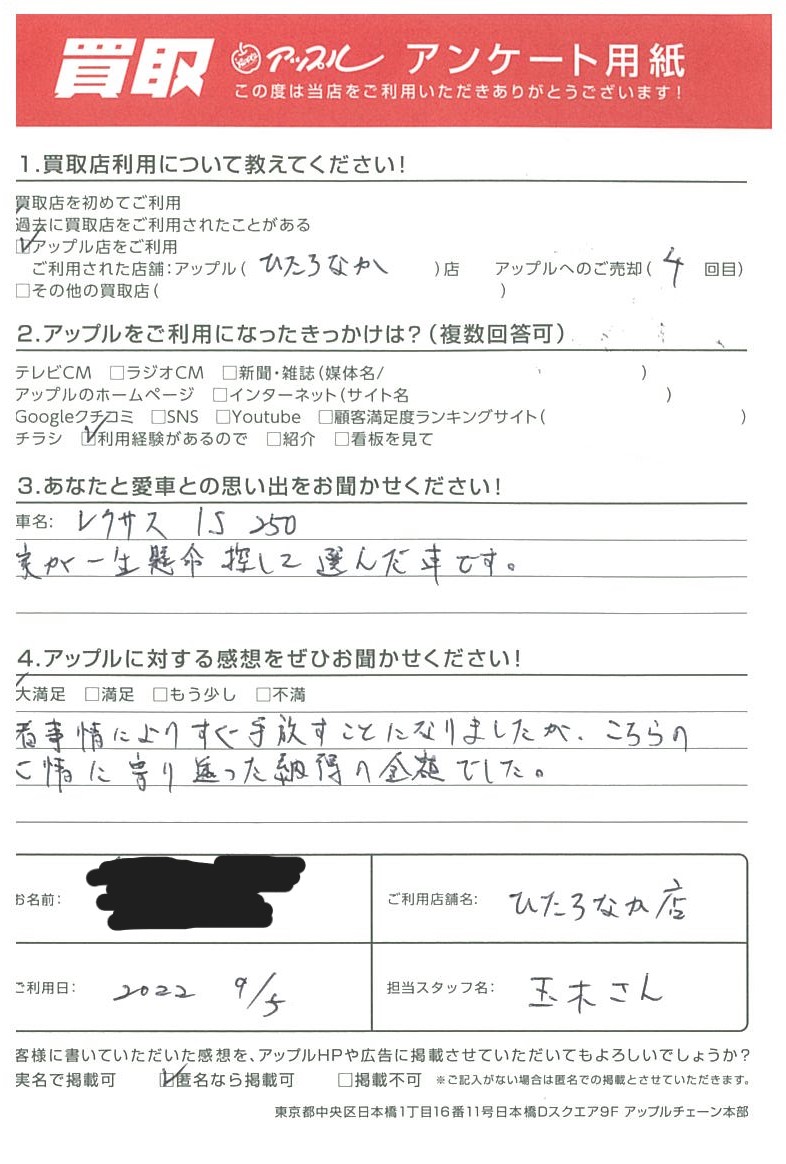 買取 アップル アンケート用紙
この度は当店をご利用いただきありがとうございます！
1.買取店利用について教えてください！
買取店を初めてご利用
過去に買取店をご利用されたことがある
☑アップル店をご利用
ご利用された店舗：アップル（ ひたちなか ）店 アップルへのご売却（ 4 回目）
□その他の買取店（ ）
2.アップルをご利用になったきっかけは？（複数回答可）
テレビCM □ラジオCM □新聞・雑誌（媒体名/ ）
アップルのホームページ □インターネット（サイト名 ）
Googleクチコミ □SNS □Youtube □顧客満足度ランキングサイト（ ）
チラシ ☑利用経験があるので □紹介 □看板を見て
3.あなたと愛車との思い出をお聞かせください！
車名： レクサス IS 250
が一生懸命探して選んだ車です。
4.アップルに対する感想をぜひお聞かせください！
大満足 □満足 □もう少し □不満
事情によりすぐ手放すことになりましたが、こちらの
情に寄り添った納得の金額でした。
お名前： ご利用店舗名： ひたちなか店
ご利用日： 2022 9/5 担当スタッフ名： 玉木さん
客様に書いていただいた感想を、アップルHPや広告に掲載させていただいてもよろしいでしょうか？
実名で掲載可 ☑匿名なら掲載可 □掲載不可 ※ご記入がない場合は匿名での掲載とさせていただきます。
東京都中央区日本橋1丁目16番11号日本橋Dスクエア9F アップルチェーン本部